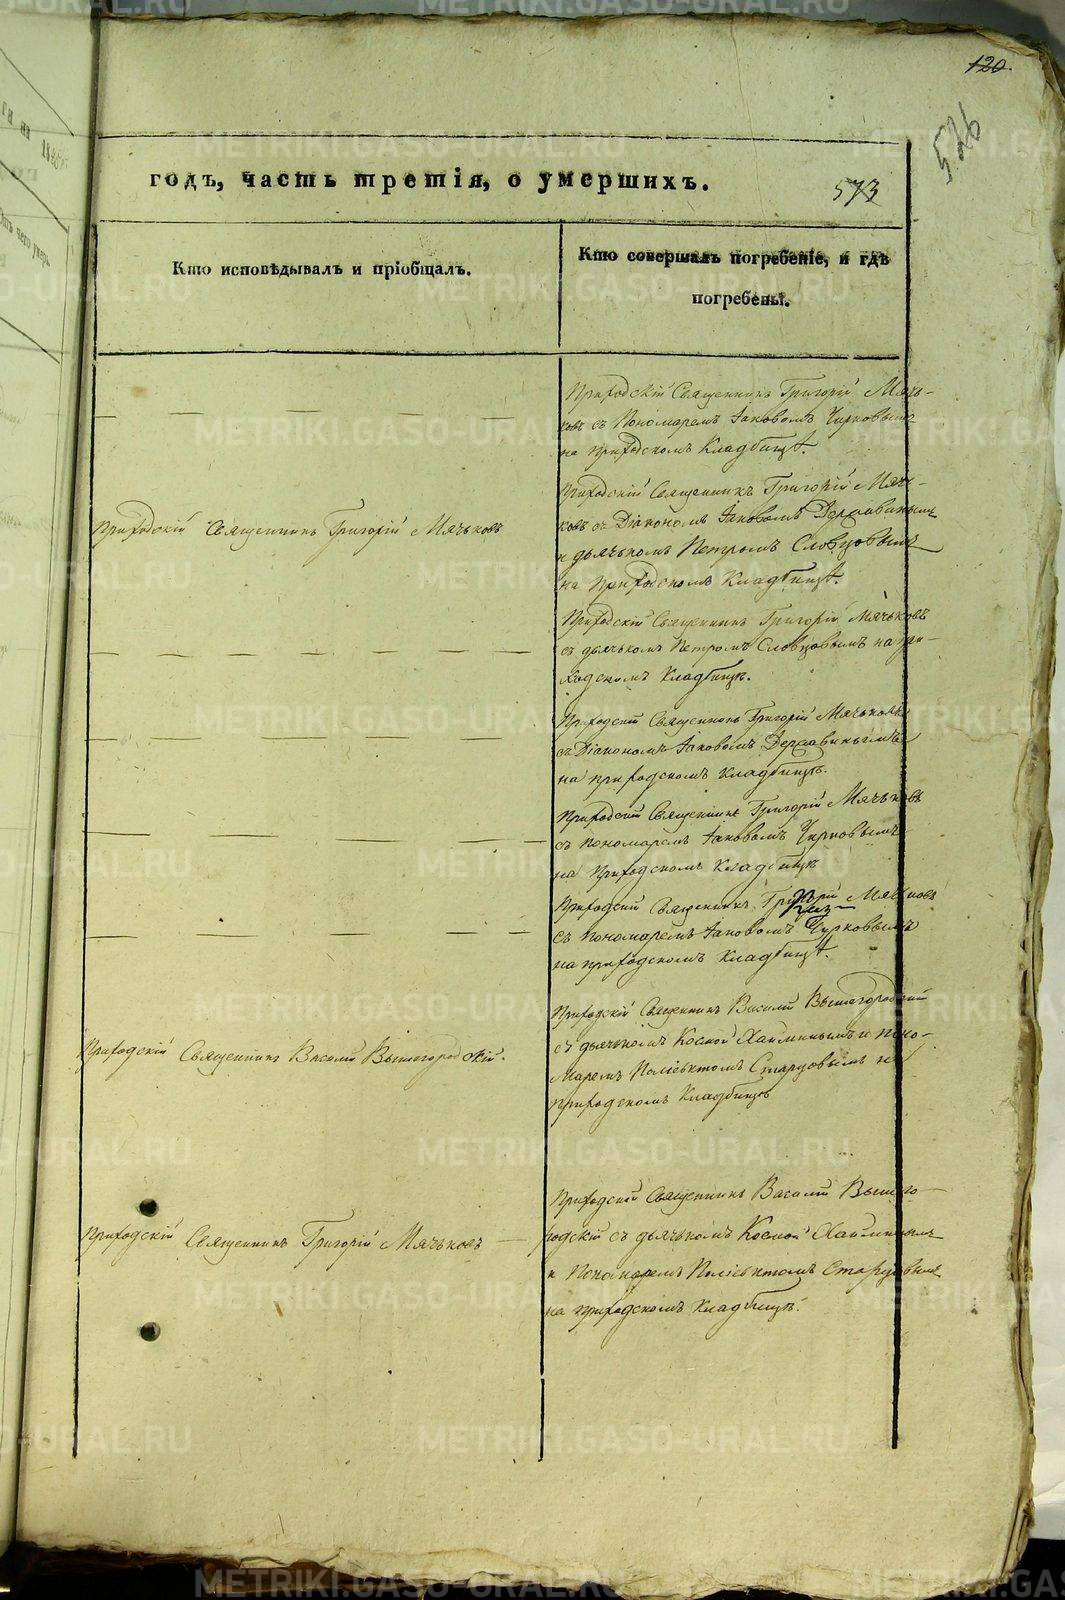 120.
526
годъ, часть третія, о умершихъ.
573
Кто исповѣдывалъ и пріобщалъ.
Кто совершалъ погребеніе, и гдѣ
погребены.
Приходскій Священникъ Григорій Мячь-
ковъ съ Пономаремъ Іаковомъ Чирковымъ
на приходскомъ Кладбищѣ.
Приходскій Священникъ Григорій Мячьковъ
Приходскій Священникъ Григорій Мячь-
ковъ съ Діакономъ Іаковомъ Державинымъ
и дьячькомъ Петромъ Словцовымъ
на Приходскомъ Кладбищѣ.
Приходскій Священникъ Григорій Мячьковъ
съ дьячькомъ Петромъ Словцовымъ на при-
ходскомъ Кладбищѣ.
Приходскій Священникъ Григорій Мячьковъ
съ Діакономъ Іаковомъ Державинымъ
на приходскомъ кладбищѣ.
Приходскій Священникъ Григорій Мячьковъ
съ пономаремъ Іаковомъ Чирковымъ
на Приходскомъ Кладбищѣ
Приходскій Священникъ Григорій Мячьковъ
съ пономаремъ Іаковомъ Чирковымъ
на приходскомъ кладбищѣ.
Приходскій Священникъ Василій Вышегородскій.
Приходскій Священникъ Василій Вышегородскій
съ дьячькомъ Космой и поно-
маремъ Поліевктомъ Старцовымъ на
приходскомъ Кладбищѣ
Приходскій Священникъ Григорій Мячьковъ
Приходскій Священникъ Василій Вышего-
родскій съ дьячькомъ Космой
и Пономаремъ Поліевктомъ Старцовымъ
на приходскомъ кладбищѣ.
METRIKI.GASO-URAL.RU